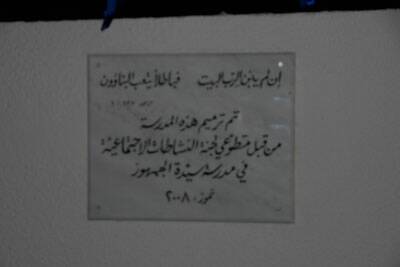 إن لم يبن الرب البيت فباطلا يتعب البناؤون
تم ترميم هذه المدرسة
من قبل متطوعي لجنة النشاطات الإجتماعية
في مدرسة سيّدة الجمهور
تموز ٢٠٠٨